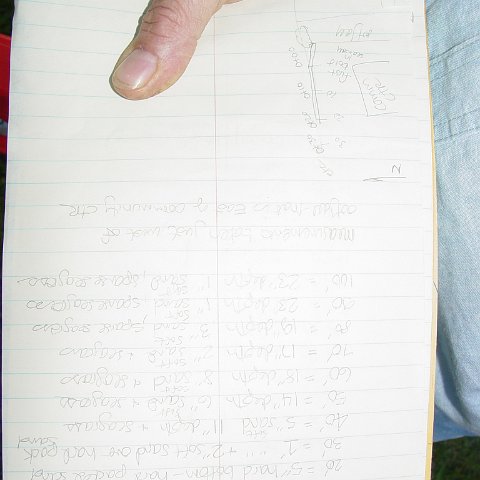 20' = 5" hard bottom - hard packed sand
30' = 1" " + 2" soft sand over hard pack sand
40' = 5" soft sand 11" depth + seagrass
50' = 14" depth 6" soft sand + seagrass
60' = 18" depth 8" soft sand + seagrass
70' = 17" depth 2" soft sand + seagrass
80' = 19" depth 3" soft sand, sparse seagrass
90' = 23" depth 1" soft sand, sparse seagrass
100' = 23" depth 1" soft sand, sparse seagrass
measurements taken just west of
outfall that is East of community ctr
N
Comm
CTR
30
20
10
outfall